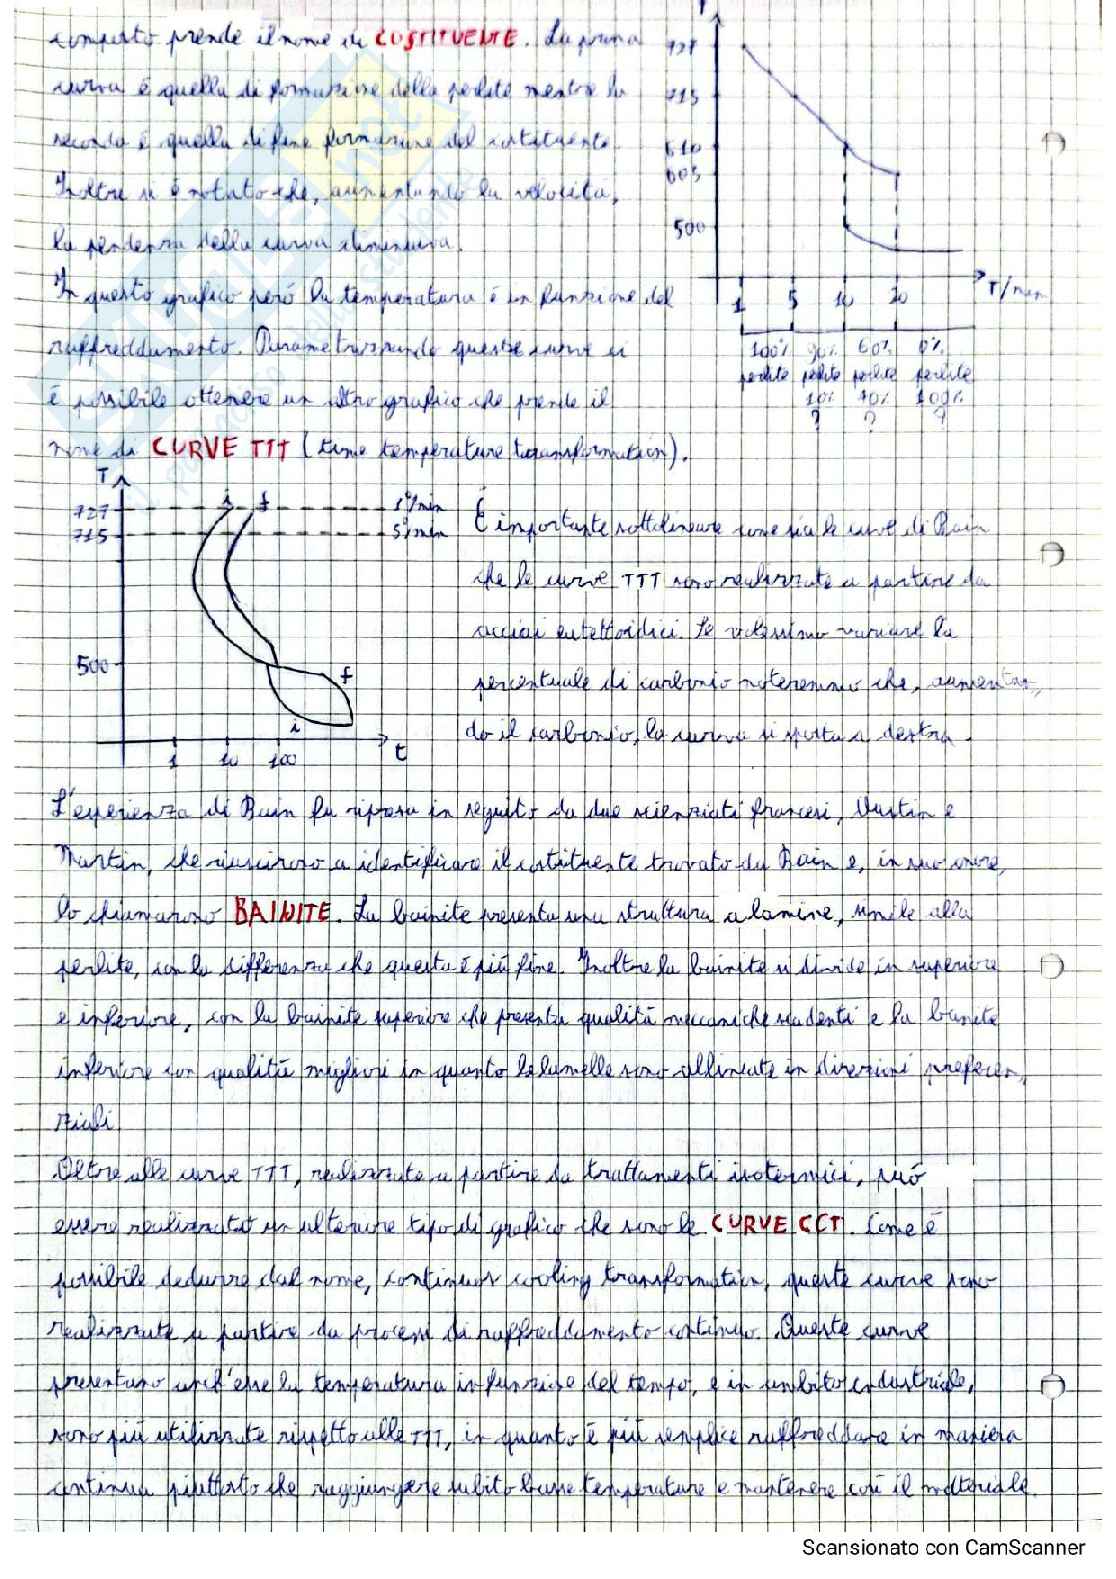 composto prende il nome di COSTITUENTE. La prima
curva è quella di formazione della perlite mentre la
seconda è quella di fine formazione del costituente.
Inoltre si è notato che, aumentando la velocità,
la pendenza della curva diminuiva.
In questo grafico però la temperatura è in funzione del
raffreddamento. Parametrizzando queste curve si
è possibile ottenere un altro grafico che prende il
nome di CURVE TTT (time temperature transformation).
727
715
610
605
500
1 5 10 20 T/min
100% 90% 60% 0%
perlite perlite perlite perlite
10% 40% 100%
? ? ?
T
727 i f 1°/min
715 5°/min
500
f
i
1 10 100 t
È importante sottolineare come sia le curve di Bain
che le curve TTT sono realizzate a partire da
acciai eutettoidici. Se volessimo variare la
percentuale di carbonio noteremmo che, aumentan,
do il carbonio, la curva si sposta a destra.
L'esperienza di Bain fu ripresa in seguito da due scienziati francesi, e
Martin, che riuscirono a identificare il costituente trovato da Bain e, in suo onore,
lo chiamarono BAINITE. La bainite presenta una struttura a lamine, simile alla
perlite, con la differenza che questa è più fine. Inoltre la bainite si divide in superiore
e inferiore, con la bainite superiore che presenta qualità meccaniche scadenti e la bainite
inferiore con qualità migliori in quanto le lamelle sono allineate in direzioni preferen,
ziali.
Oltre alle curve TTT, realizzate a partire da trattamenti isotermici, può
essere realizzato un ulteriore tipo di grafico che sono le CURVE CCT. Come è
possibile dedurre dal nome, continuos cooling transformation, queste curve sono
realizzate a partire da processi di raffreddamento continuo. Queste curve
presentano anch'esse la temperatura in funzione del tempo, e in ambito industriale,
sono più utilizzate rispetto alle TTT, in quanto è più semplice raffreddare in maniera
continua piuttosto che raggiungere subito basse temperature e mantenere così il materiale.
Scansionato con CamScanner